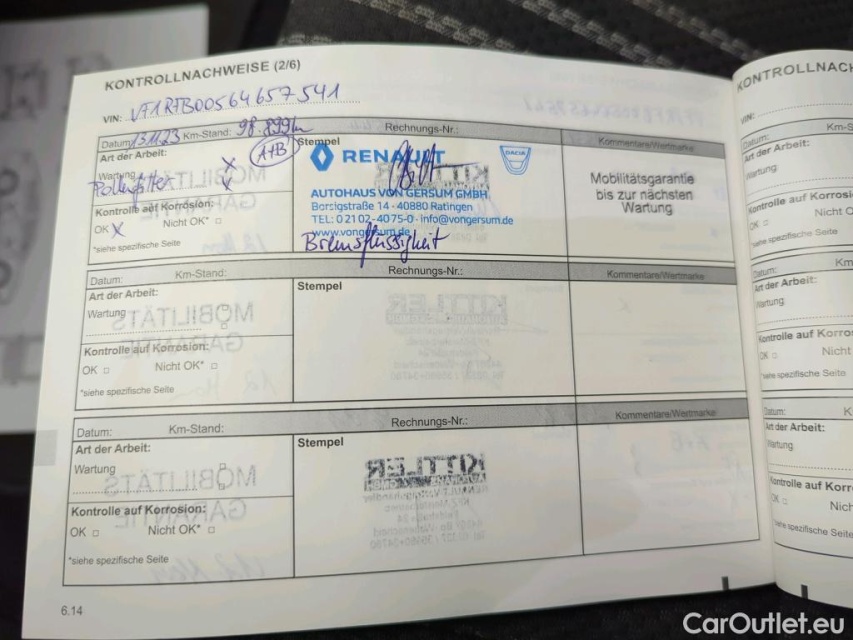 KONTROLLNACHWEISE (2/6)
VIN: VF1RFB00564657541
Datum: 13.11.23 Km-Stand: 98.899km Rechnungs-Nr.: Kommentare/Wertmarke
Art der Arbeit: A+B
Wartung x
Pollenfilter x
Kontrolle auf Korrosion:
OK x Nicht OK*
*siehe spezifische Seite
Stempel
RENAULT
DACIA
AUTOHAUS VON GERSUM GMBH
Borsigstraße 14 · 40880 Ratingen
TEL: 0 21 02 - 4075-0 · info@vongersum.de
www.vongersum.de
Bremsflüssigkeit
Mobilitätsgarantie
bis zur nächsten
Wartung
Datum: Km-Stand: Rechnungs-Nr.: Kommentare/Wertmarke
Art der Arbeit:
Wartung
Kontrolle auf Korrosion:
OK □ Nicht OK* □
*siehe spezifische Seite
Stempel
Datum: Km-Stand: Rechnungs-Nr.: Kommentare/Wertmarke
Art der Arbeit:
Wartung
Kontrolle auf Korrosion:
OK □ Nicht OK* □
*siehe spezifische Seite
Stempel
KITTLER
6.14
KONTROLLNACH
VIN:
Datum: Km-S
Art der Arbeit:
Wartung
Kontrolle auf Korrosion
OK □ Nicht O
*siehe spezifische Seite
Datum: Km-
Art der Arbeit:
Wartung
Kontrolle auf Korro
OK □ Nicht
*siehe spezifische Seite
Datum: K
Art der Arbeit:
Wartung
Kontrolle auf Korr
OK □ Nic
*siehe spezifische Seite
CarOutlet.eu